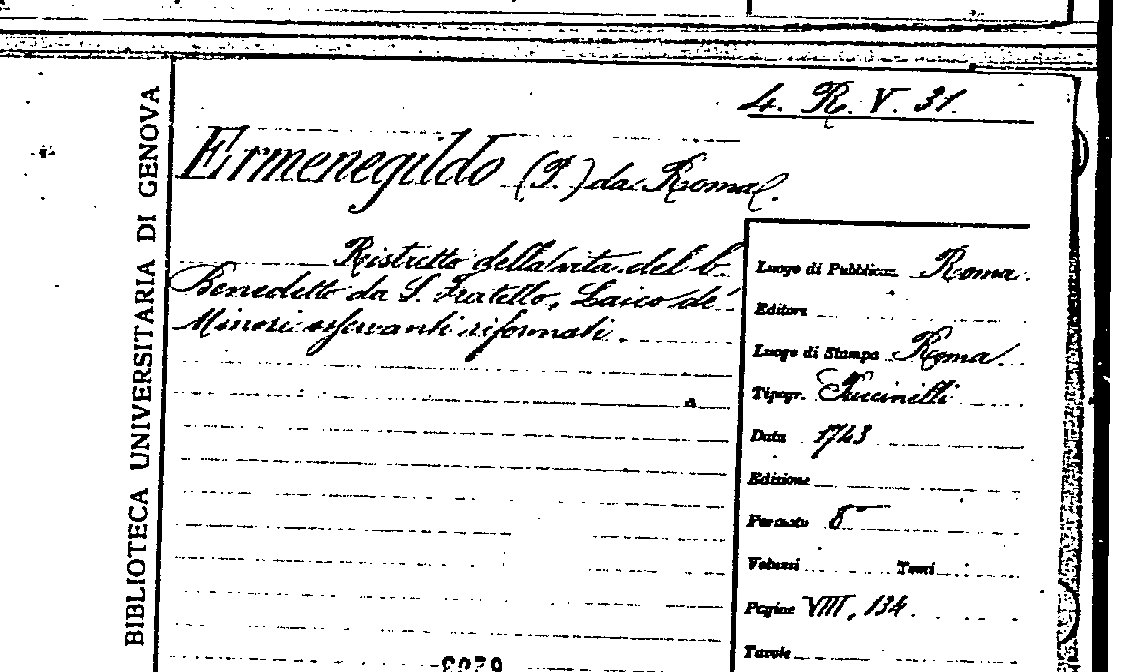 BIBLIOTECA UNIVERSITARIA DI GENOVA
4. R. V. 31.
Ermenegildo (P.) da Roma.
Ristretto della vita del b.
Benedetto da S. Fratello, Laico de'
Minori osservanti riformati.
Luogo di Pubblicaz. Roma.
Editore
Luogo di Stampa Roma.
Tipogr. Puccinelli
Data 1743
Edizione
Formato 8°
Volumi Tomi
Pagine VIII, 134.
Tavole